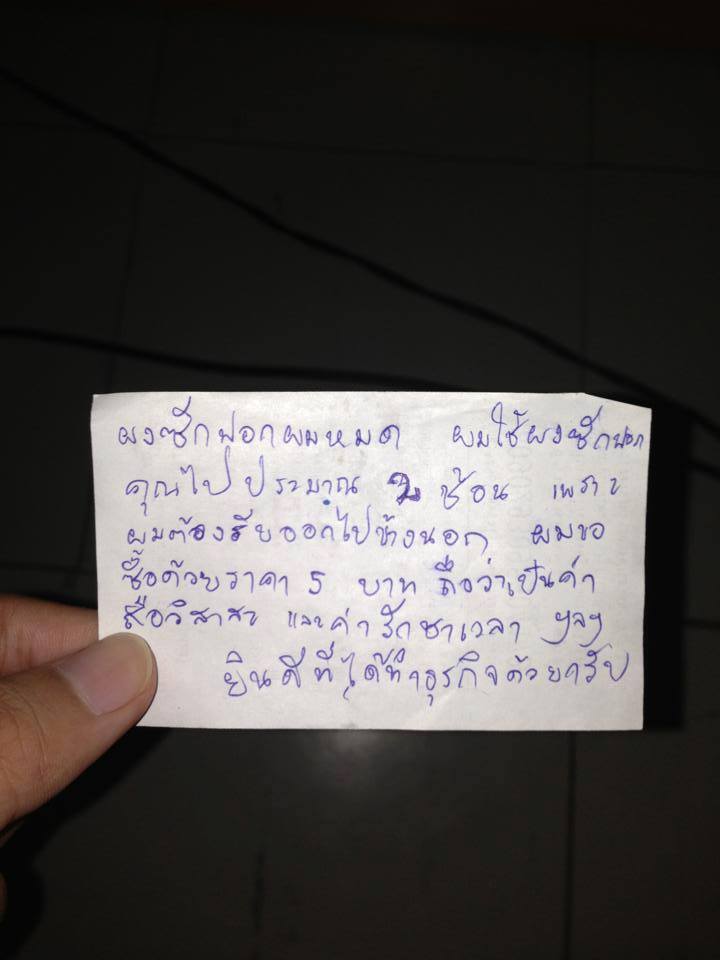 ผงซักฟอกผมหมด ผมใช้ผงซักฟอก
คุณไปประมาณ 2 ช้อน เพราะ
ผมต้องรีบออกไปข้างนอก ผมขอ
ซื้อด้วยราคา 5 บาท ถือว่าเป็นค่า
ถือวิสาสะ และค่ารักษาเวลา ฯลฯ
ยินดีที่ได้ทำธุรกิจด้วยครับ